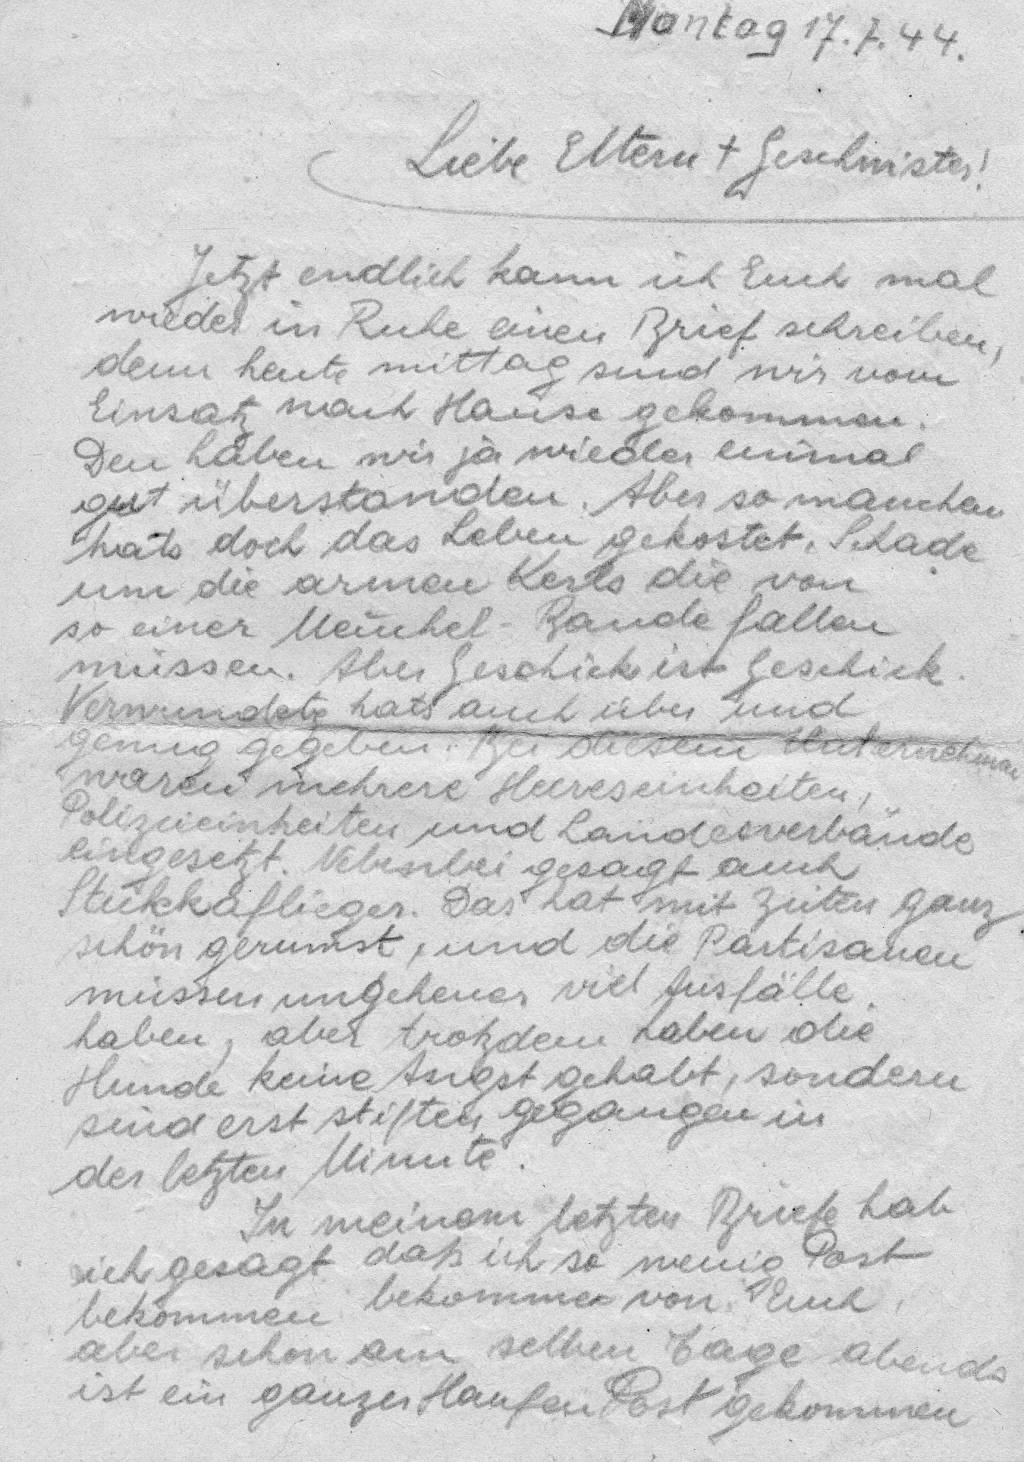 Montag 17.7.44.
Liebe Eltern + Geschwister!
Jetzt endlich kann ich Euch mal
wieder in Ruhe einen Brief schreiben,
denn heute mittag sind wir vom
Einsatz nach Hause gekommen.
Den haben wir ja wieder einmal
gut überstanden. Aber so manchen
hats doch das Leben gekostet. Schade
um die armen Kerls die von
so einer Meuchel-Bande fallen
müssen. Aber Geschick ist Geschick.
Verwundete hats auch über und
genug gegeben. Bei diesem Unternehmen
waren mehrere Heereseinheiten,
Polizeieinheiten und Landesverbände
eingesetzt. Nebenbei gesagt auch
Stukkaflieger. Das hat mit Zeiten ganz
schön gerumst, und die Partisanen
müssen ungeheuer viel Ausfälle
haben, aber trotzdem haben die
Hunde keine Angst gehabt, sondern
sind erst stiften gegangen in
der letzten Minute.
In meinem letzten Briefe hab
ich gesagt daß ich so wenig Post
bekommen bekomme von Euch,
aber schon am selben Tage abends
ist ein ganzer Haufen Post gekommen